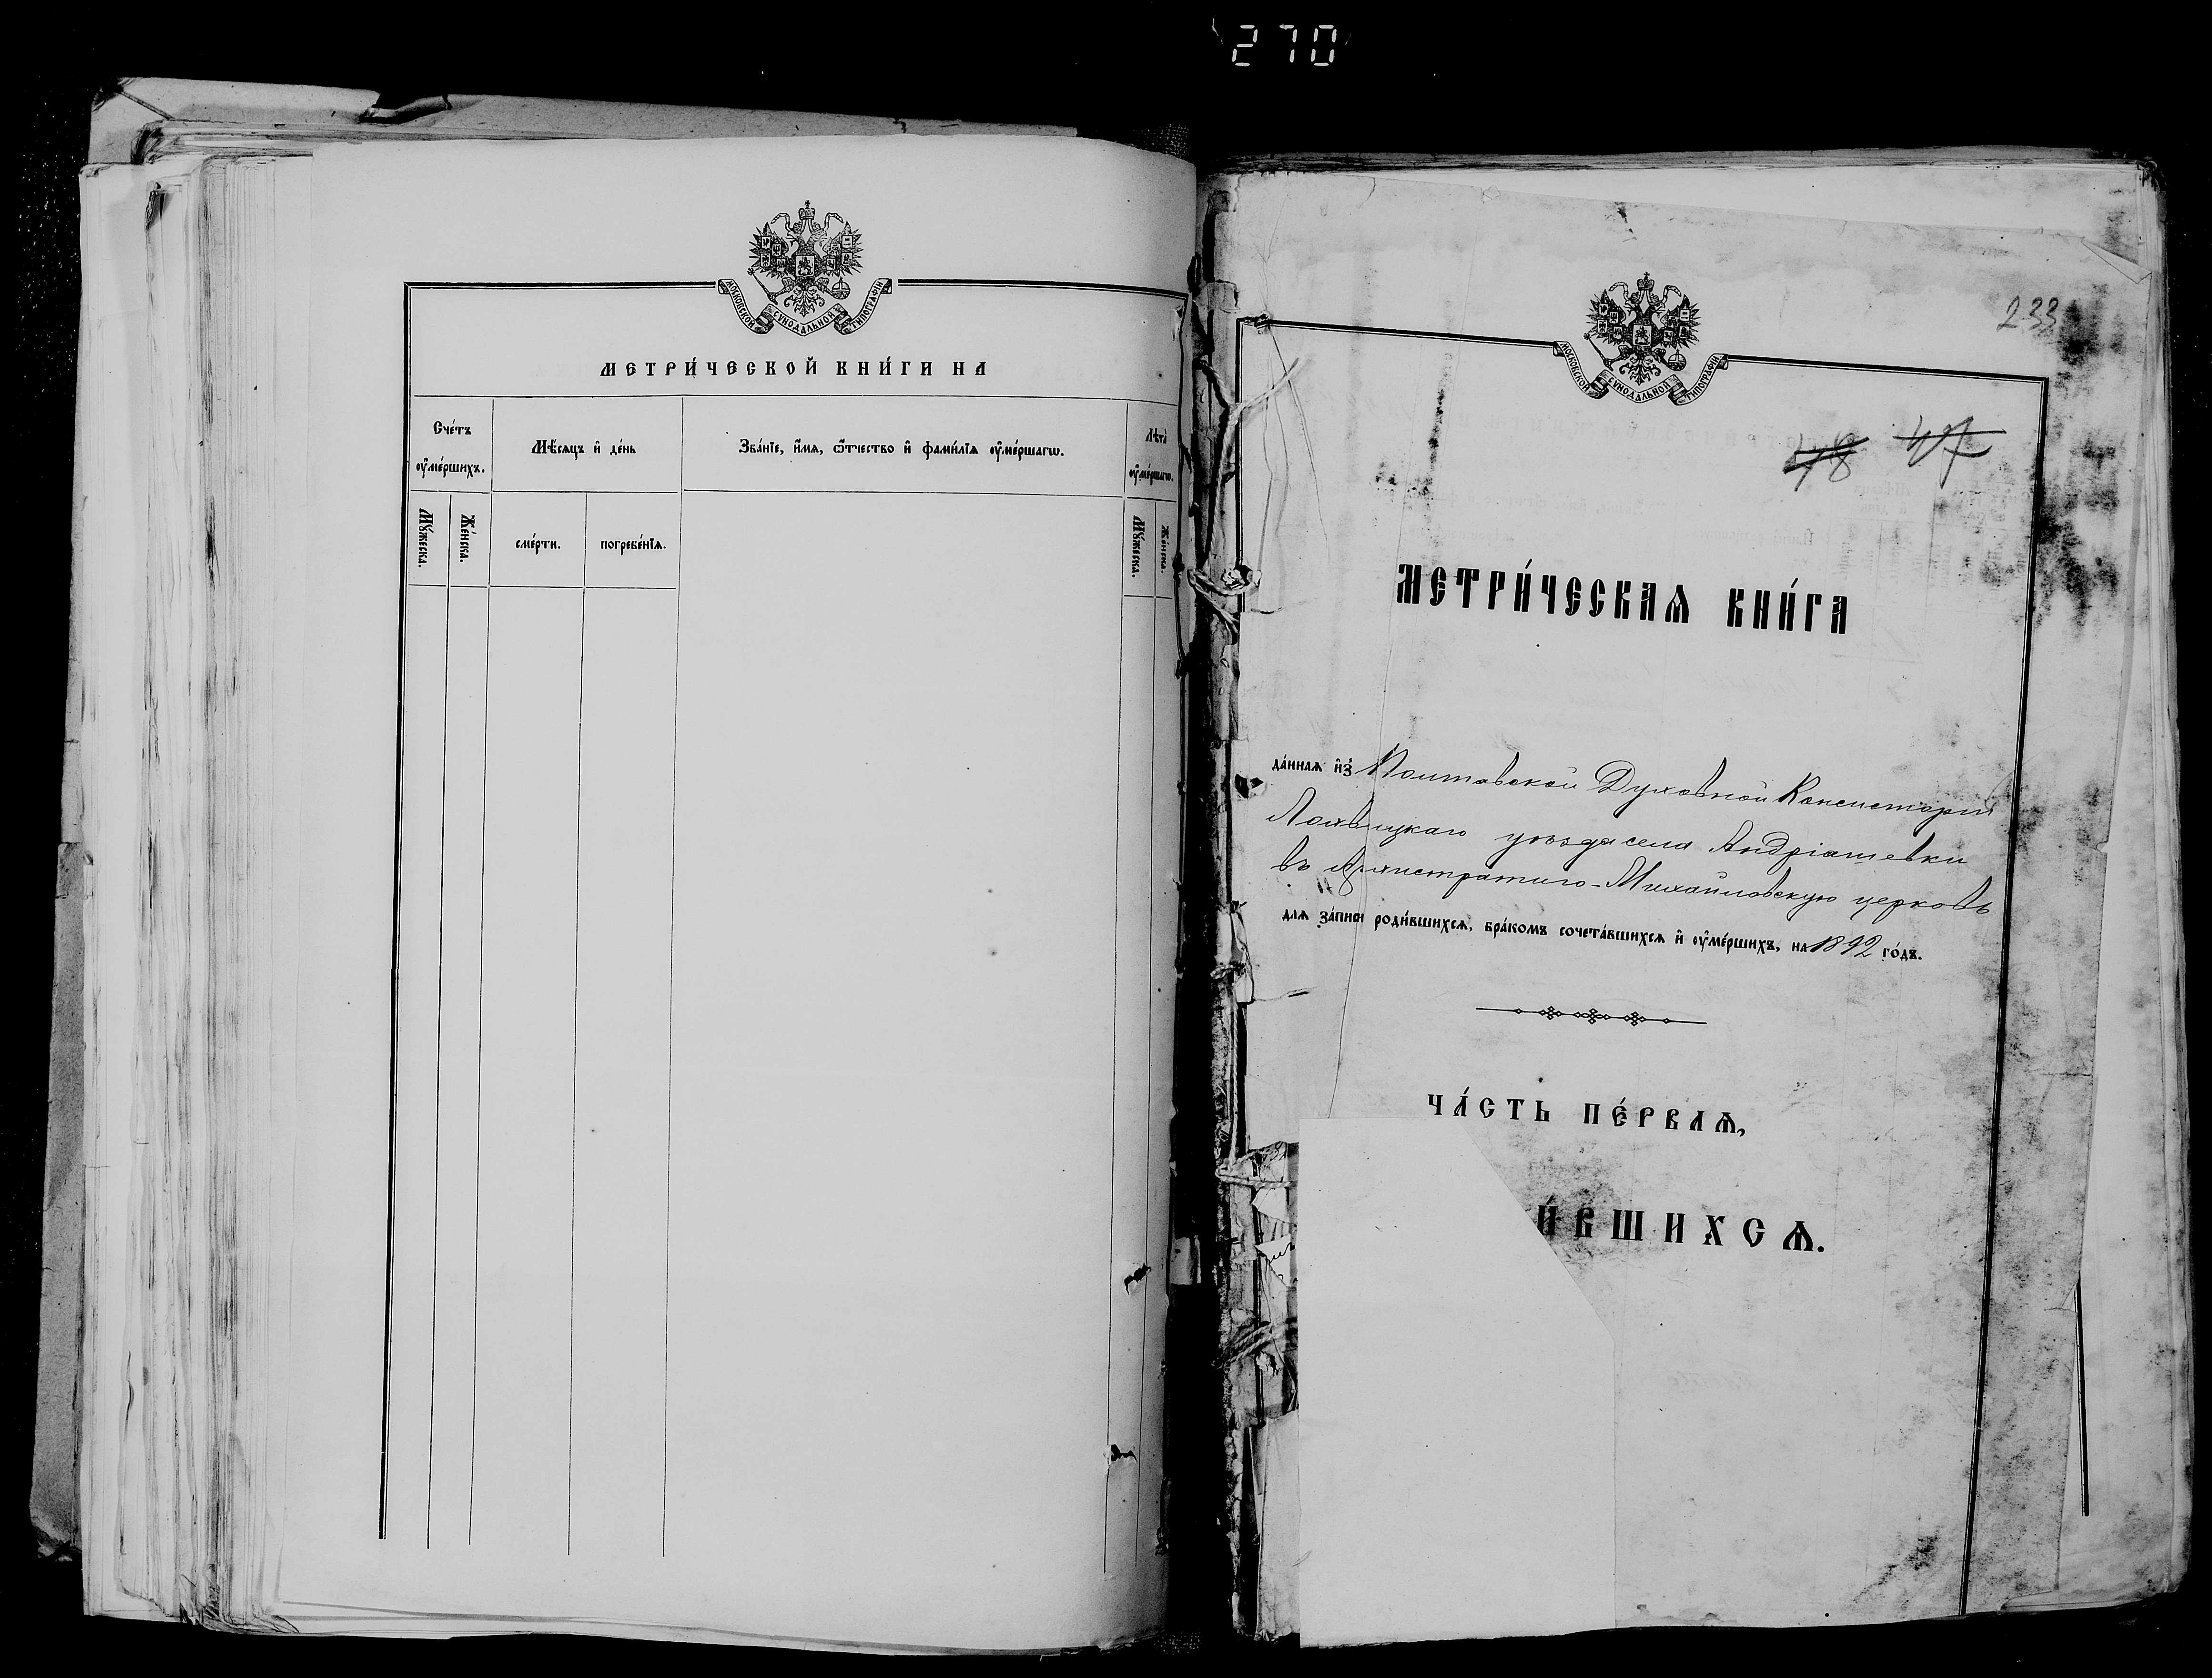 270
МОСКОВСКОЙ СѴНОДАЛЬНОЙ ТИПОГРАФІИ
МЕТРИ́ЧЕСКОЙ КНИ́ГИ НА
Сче́тъ ᲂу҆ме́ршихъ.
Мѣ́сѧцъ и҆ де́нь
Зва́нїе, и҆́мѧ, ѻ҆́тчество и҆ фами́лїѧ ᲂу҆ме́ршагѡ.
Лѣ́та ᲂу҆ме́ршагѡ.
Мꙋ́жеска.
Же́нска.
сме́рти.
погребе́нїѧ.
Мꙋ́жеска.
Же́нска.
МОСКОВСКОЙ СѴНОДАЛЬНОЙ ТИПОГРАФІИ
233
48 47
МЕТРИ́ЧЕСКАѦ КНИ́ГА
да́ннаѧ и҆з̾ Полтавской Духовной Консисторіи
Лохвицкаго уѣзда села Андріяшевки
въ Архистратиго-Михайловскую церковь
длѧ за́писи роди́вшихсѧ, бра́комъ сочета́вшихсѧ и҆ ᲂу҆ме́ршихъ, на 1892 го́дъ.
ЧА́СТЬ ПЕ́РВАѦ,
И́ВШИХСѦ.